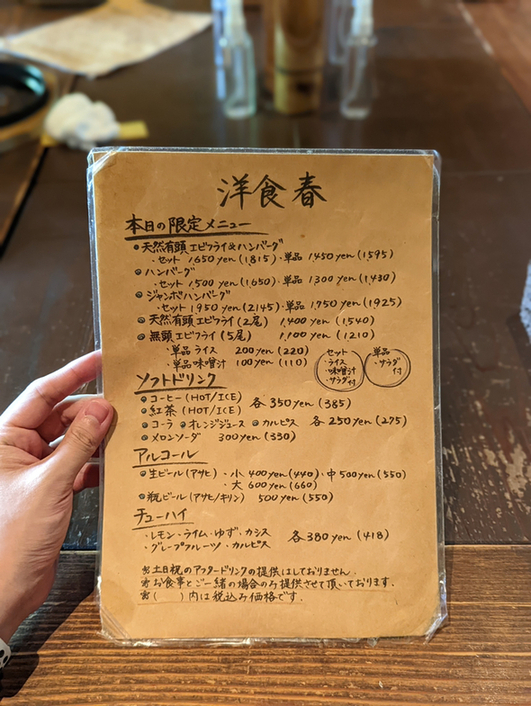 洋食春
本日の限定メニュー
天然有頭エビフライ&ハンバーグ
・セット 1,650yen (1815)・単品 1450yen (1595)
ハンバーグ
・セット 1,500yen (1,650)・単品 1300yen (1,430)
ジャンボハンバーグ
・セット 1950yen (2145)・単品 1,750yen (1925)
天然有頭エビフライ(2尾) 1,400yen (1,540)
無頭エビフライ(5尾) 1,100yen (1210)
・単品ライス 200yen (220)
・単品味噌汁 100yen (110)
セット
・ライス
・味噌汁
・サラダ付
単品
・サラダ
付
ソフトドリンク
コーヒー(HOT/ICE)
紅茶(HOT/ICE)
各350yen (385)
コーラ オレンジジュース カルピス 各250yen (275)
メロンソーダ 300yen (330)
アルコール
生ビール(アサヒ)・小 400yen (440)・中 500yen (550)
・大 600yen (660)
瓶ビール(アサヒ/キリン) 500yen (550)
チューハイ
・レモン・ライム・ゆず・カシス
・グレープフルーツ・カルピス
各380yen (418)
※土日祝のアフタードリンクの提供はしておりません
※お食事とご一緒の場合のみ提供させて頂いております.
※( )内は税込み価格です.